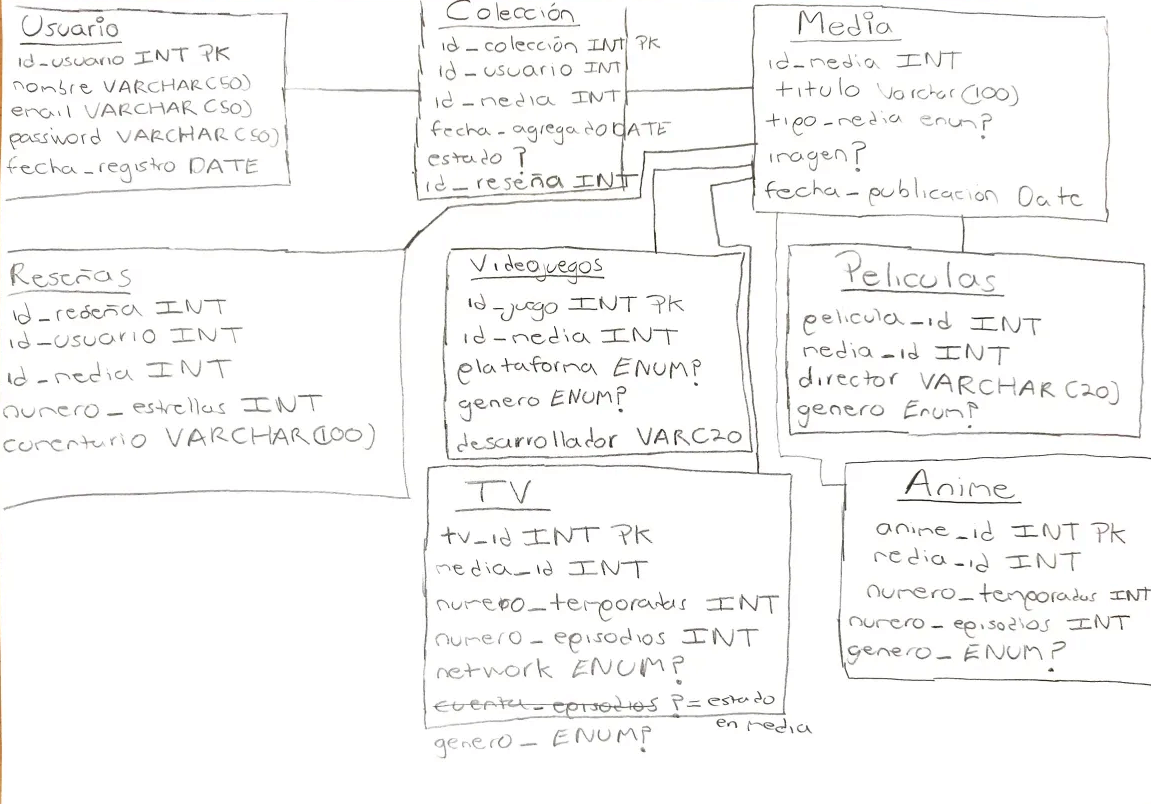 Usuario
id_usuario INT PK
nombre VARCHAR(50)
email VARCHAR(50)
password VARCHAR(50)
fecha_registro DATE
Colección
id_colección INT PK
id_usuario INT
id_media INT
fecha_agregado DATE
estado ?
id_reseña INT
Media
id_media INT
titulo Varchar(100)
tipo_media enum?
imagen?
fecha_publicación Date
Reseñas
id_reseña INT
id_usuario INT
id_media INT
numero_estrellas INT
comentario VARCHAR(100)
Videojuegos
id_juego INT PK
id_media INT
plataforma ENUM?
genero ENUM?
desarrollador VARC20
Peliculas
pelicula_id INT
media_id INT
director VARCHAR(20)
genero Enum?
TV
tv_id INT PK
media_id INT
numero_temporadas INT
numero_episodios INT
network ENUM?
cuenta_episodios ?=estado
en media
genero_ ENUM?
Anime
anime_id INT PK
media_id INT
numero_temporadas INT
numero_episodios INT
genero_ ENUM?